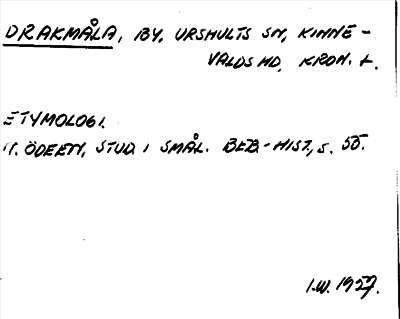 DRAKMÅLA, BY, URSHULTS SN, KINNE-
VALDS HD, KRON. L.
ETYMOLOGI.
ÖDEETY, STUD. I SMÅL. BEB.-HIST, S. 55.
I.W. 1957.